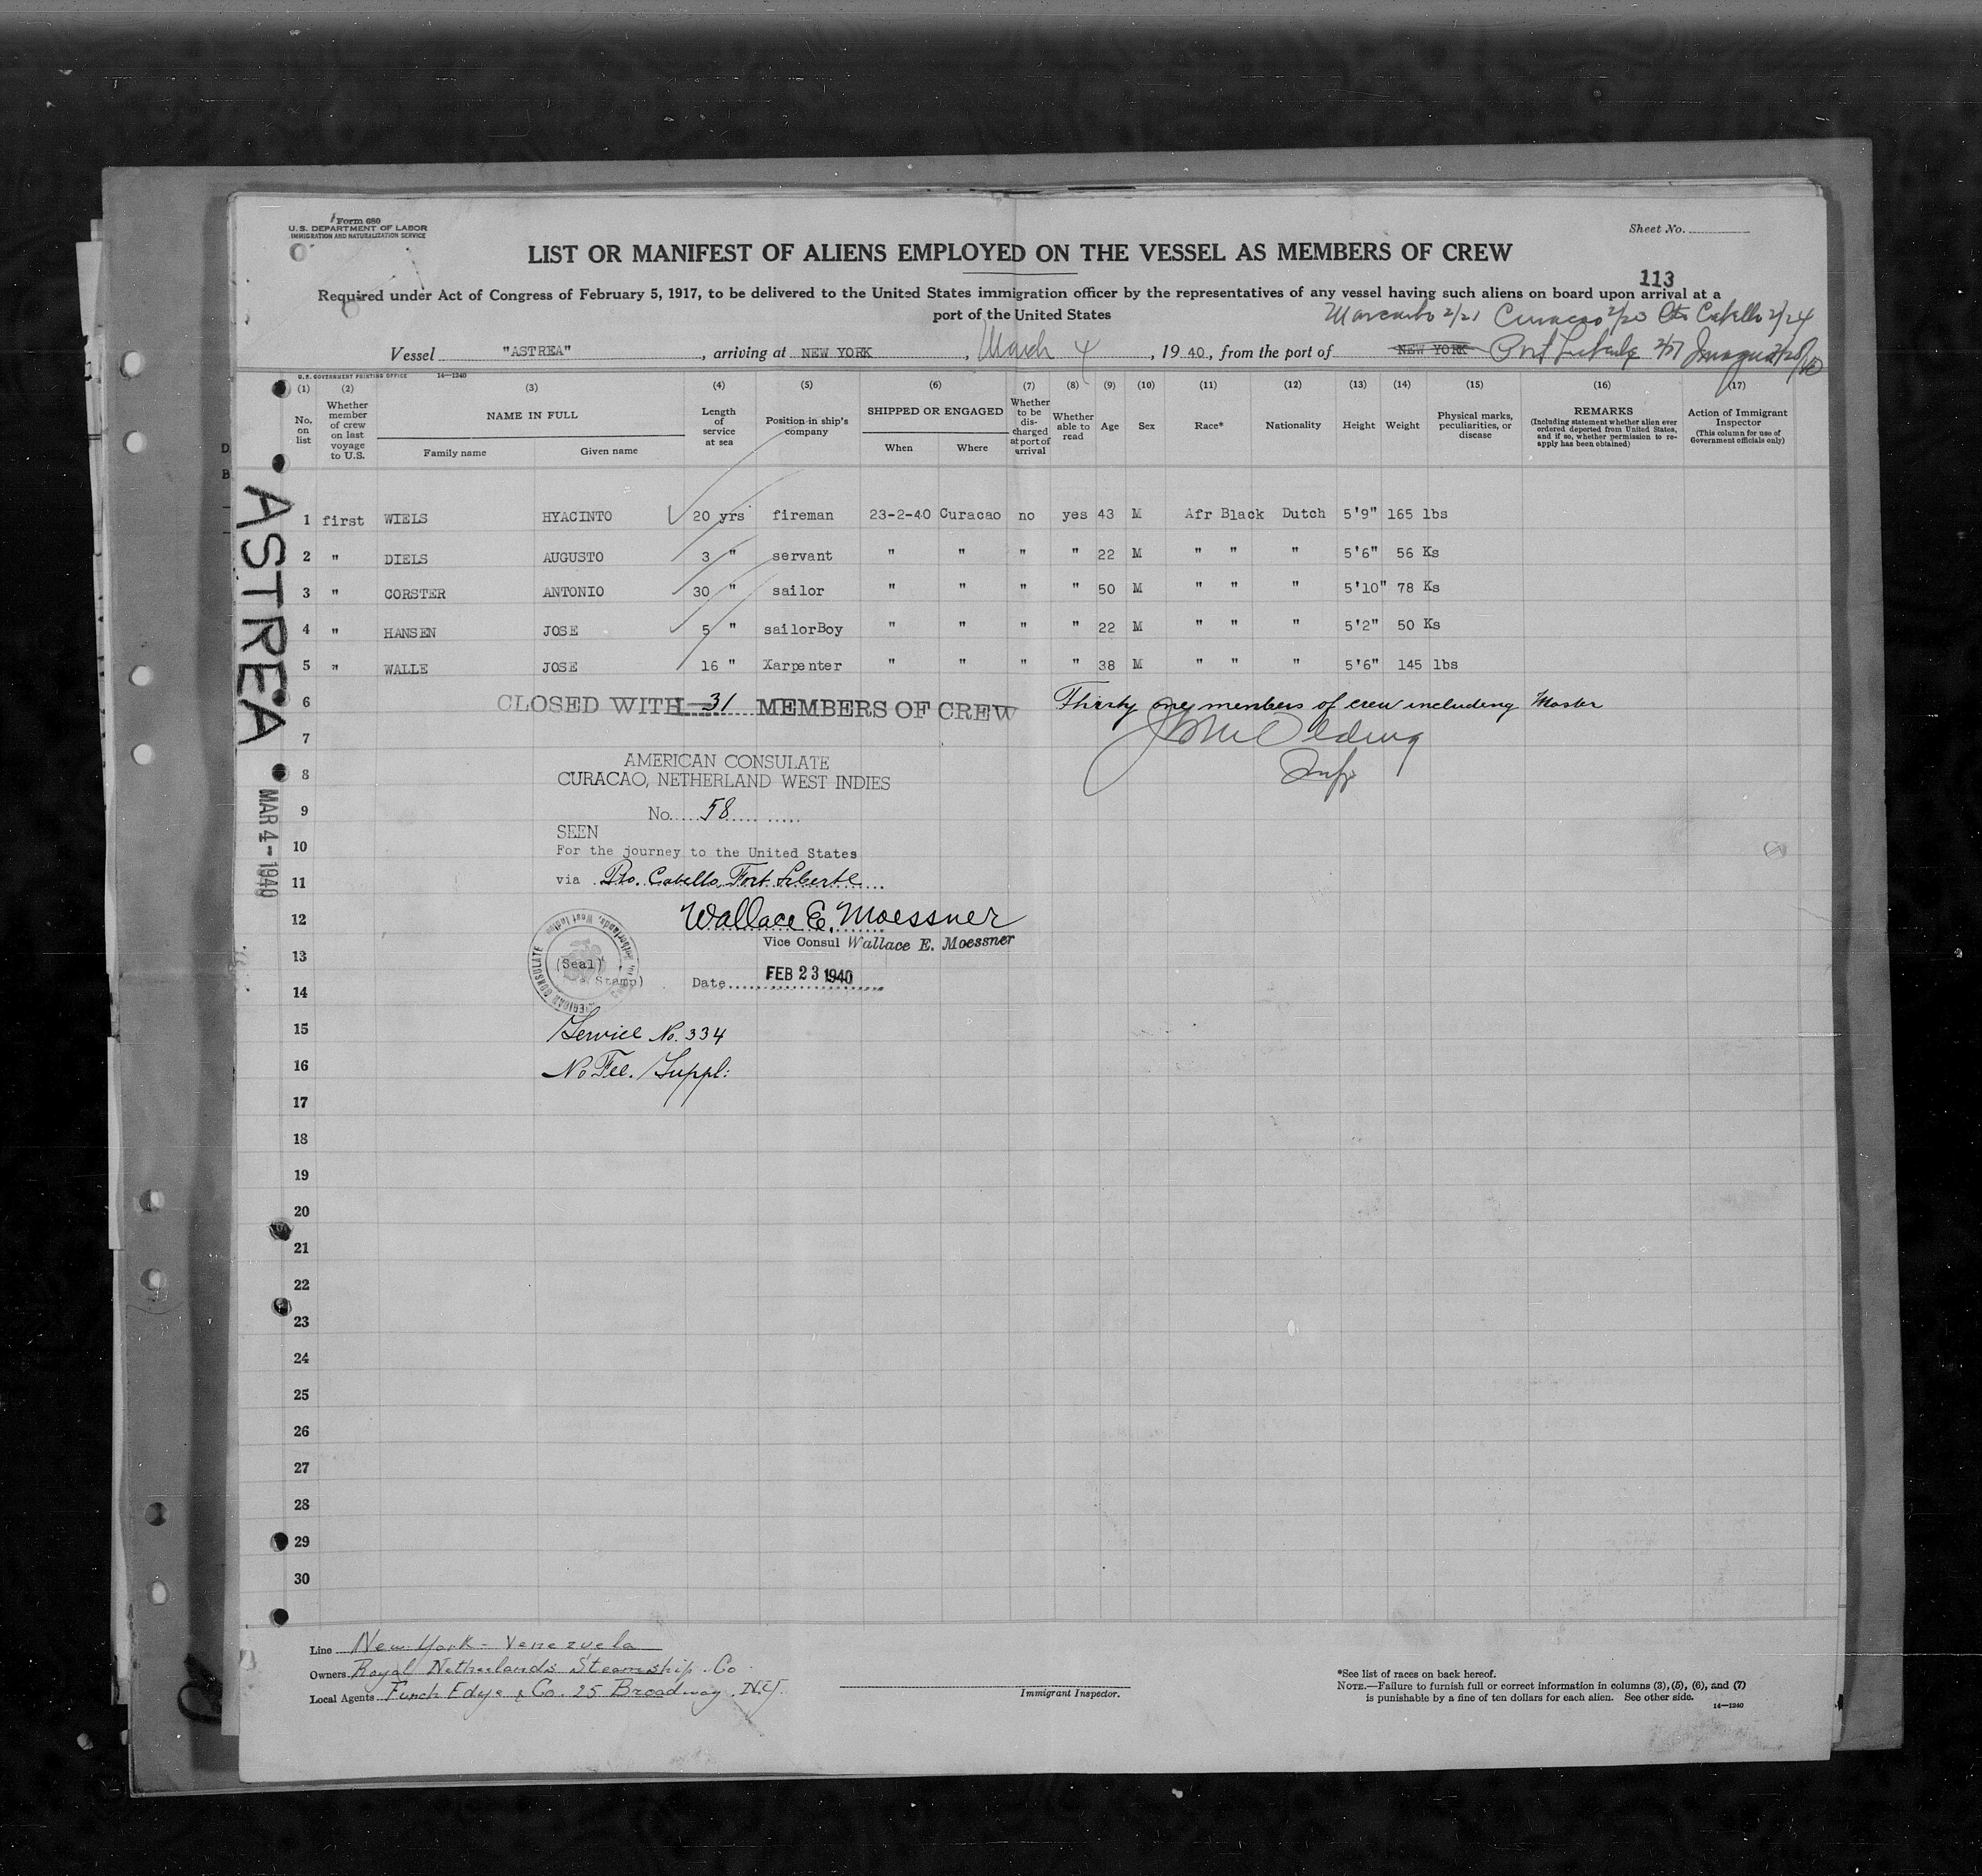 Form 680
U.S. DEPARTMENT OF LABOR
IMMIGRATION AND NATURALIZATION SERVICE
Sheet No.
LIST OR MANIFEST OF ALIENS EMPLOYED ON THE VESSEL AS MEMBERS OF CREW
113
Required under Act of Congress of February 5, 1917, to be delivered to the United States immigration officer by the representatives of any vessel having such aliens on board upon arrival at a
port of the United States
2/21 Curacao 2/23 Pto Cabello 2/24
Vessel "ASTREA", arriving at NEW YORK, March 4, 1940, from the port of NEW YORK Port 2/27
U.S. GOVERNMENT PRINTING OFFICE 14—1240
(1) (2) (3) (4) (5) (6) (7) (8) (9) (10) (11) (12) (13) (14) (15) (16) (17)
No. on list
Whether member of crew on last voyage to U.S.
NAME IN FULL
Family name
Given name
Length of service at sea
Position in ship's company
SHIPPED OR ENGAGED
When
Where
Whether to be discharged at port of arrival
Whether able to read
Age
Sex
Race*
Nationality
Height
Weight
Physical marks, peculiarities, or disease
REMARKS
(Including statement whether alien ever ordered deported from United States, and if so, whether permission to reapply has been obtained)
Action of Immigrant Inspector
(This column for use of Government officials only)
1 first WIELS HYACINTO 20 yrs fireman 23-2-40 Curacao no yes 43 M Afr Black Dutch 5'9" 165 lbs
2 " DIELS AUGUSTO 3 " servant " " " " 22 M " " " 5'6" 56 Ks
3 " CORSTER ANTONIO 30 " sailor " " " " 50 M " " " 5'10" 78 Ks
4 " HANSEN JOSE 5 " sailorBoy " " " " 22 M " " " 5'2" 50 Ks
5 " WALLE JOSE 16 " Xarpenter " " " " 38 M " " " 5'6" 145 lbs
6 CLOSED WITH 31 MEMBERS OF CREW Thirty one members of crew including Master
7
8 AMERICAN CONSULATE
CURACAO, NETHERLAND WEST INDIES
9 No. 58
10 SEEN
For the journey to the United States
11 via Pto. Cabello, Fort Liberté
12 Wallace E. Moessner
Vice Consul Wallace E. Moessner
13 (Seal)
Stamp)
14 Date FEB 23 1940
15 Service No. 334
16 No Fee. Suppl:
17
18
19
20
21
22
23
24
25
26
27
28
29
30
ASTREA
MAR 4 - 1940
AMERICAN CONSULATE
Line New York - Venezuela
Owners Royal Netherlands Steamship Co
Local Agents Funch Edye & Co. 25 Broadway. N.Y.
Immigrant Inspector.
*See list of races on back hereof.
NOTE.—Failure to furnish full or correct information in columns (3), (5), (6), and (7)
is punishable by a fine of ten dollars for each alien. See other side.
14—1240